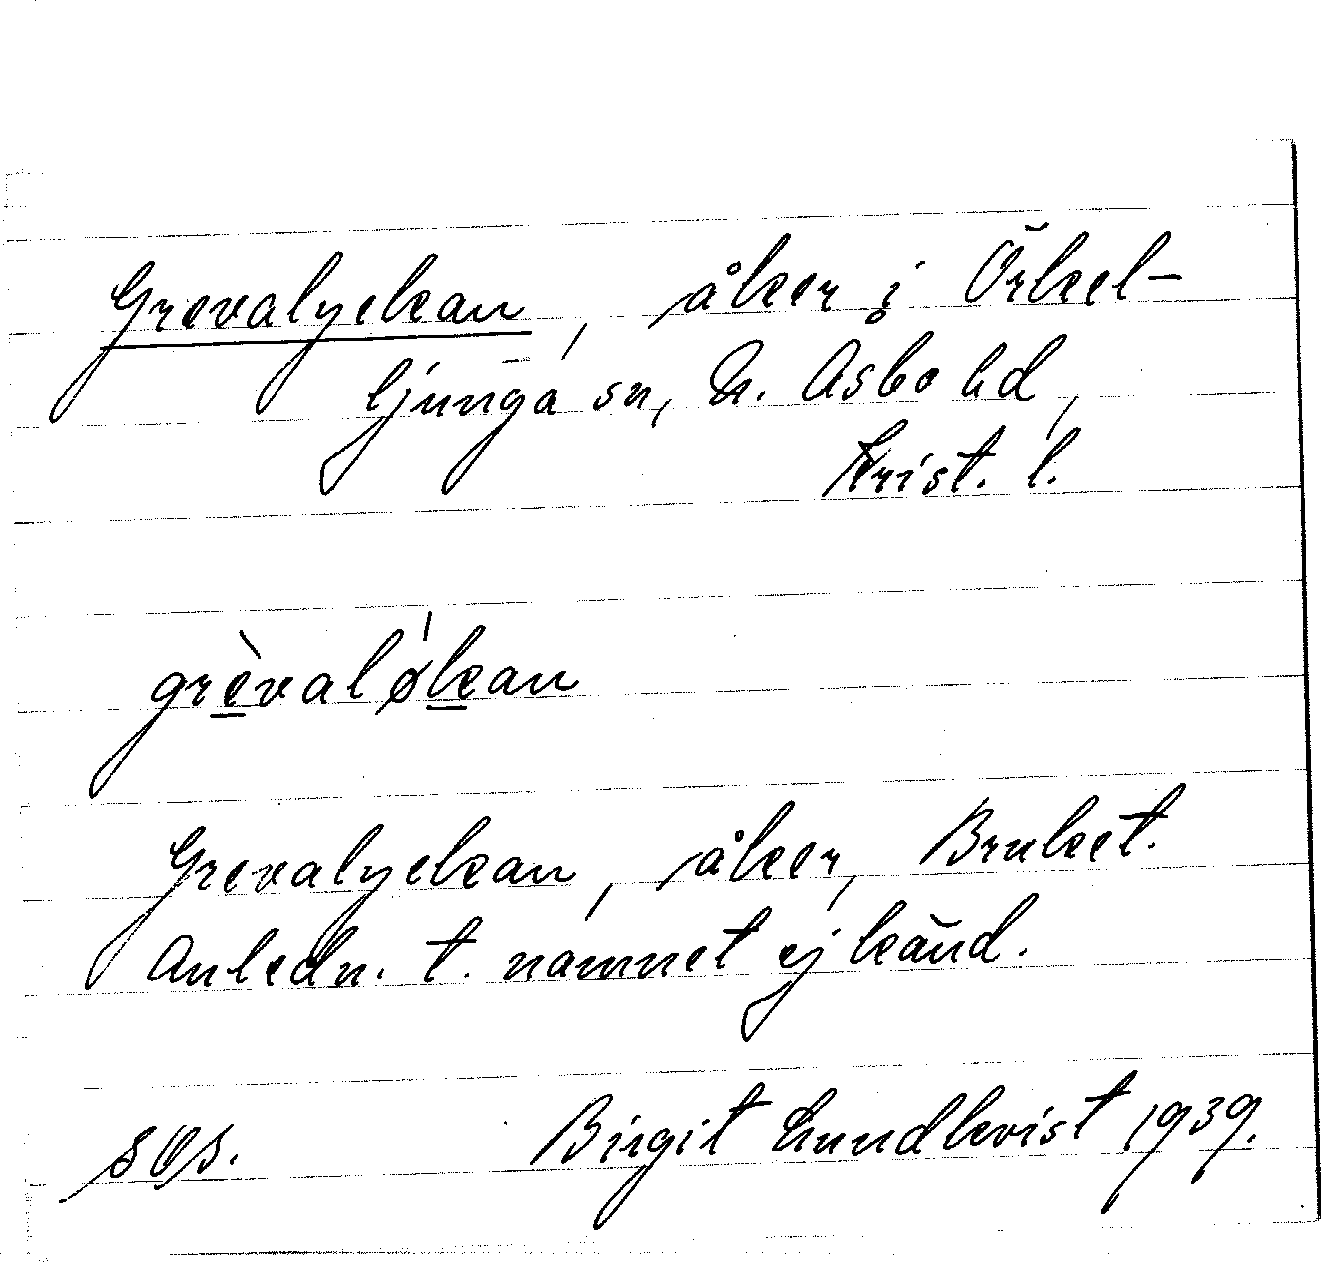 Grevalyckan, åker i Örkel-
ljunga sn, N. Åsbo hd,
Krist. l.
grèvalǿkan
Grevalyckan, åker, Bruket.
Anledn. t. namnet ej känd.
Birgit Lundkvist 1939.